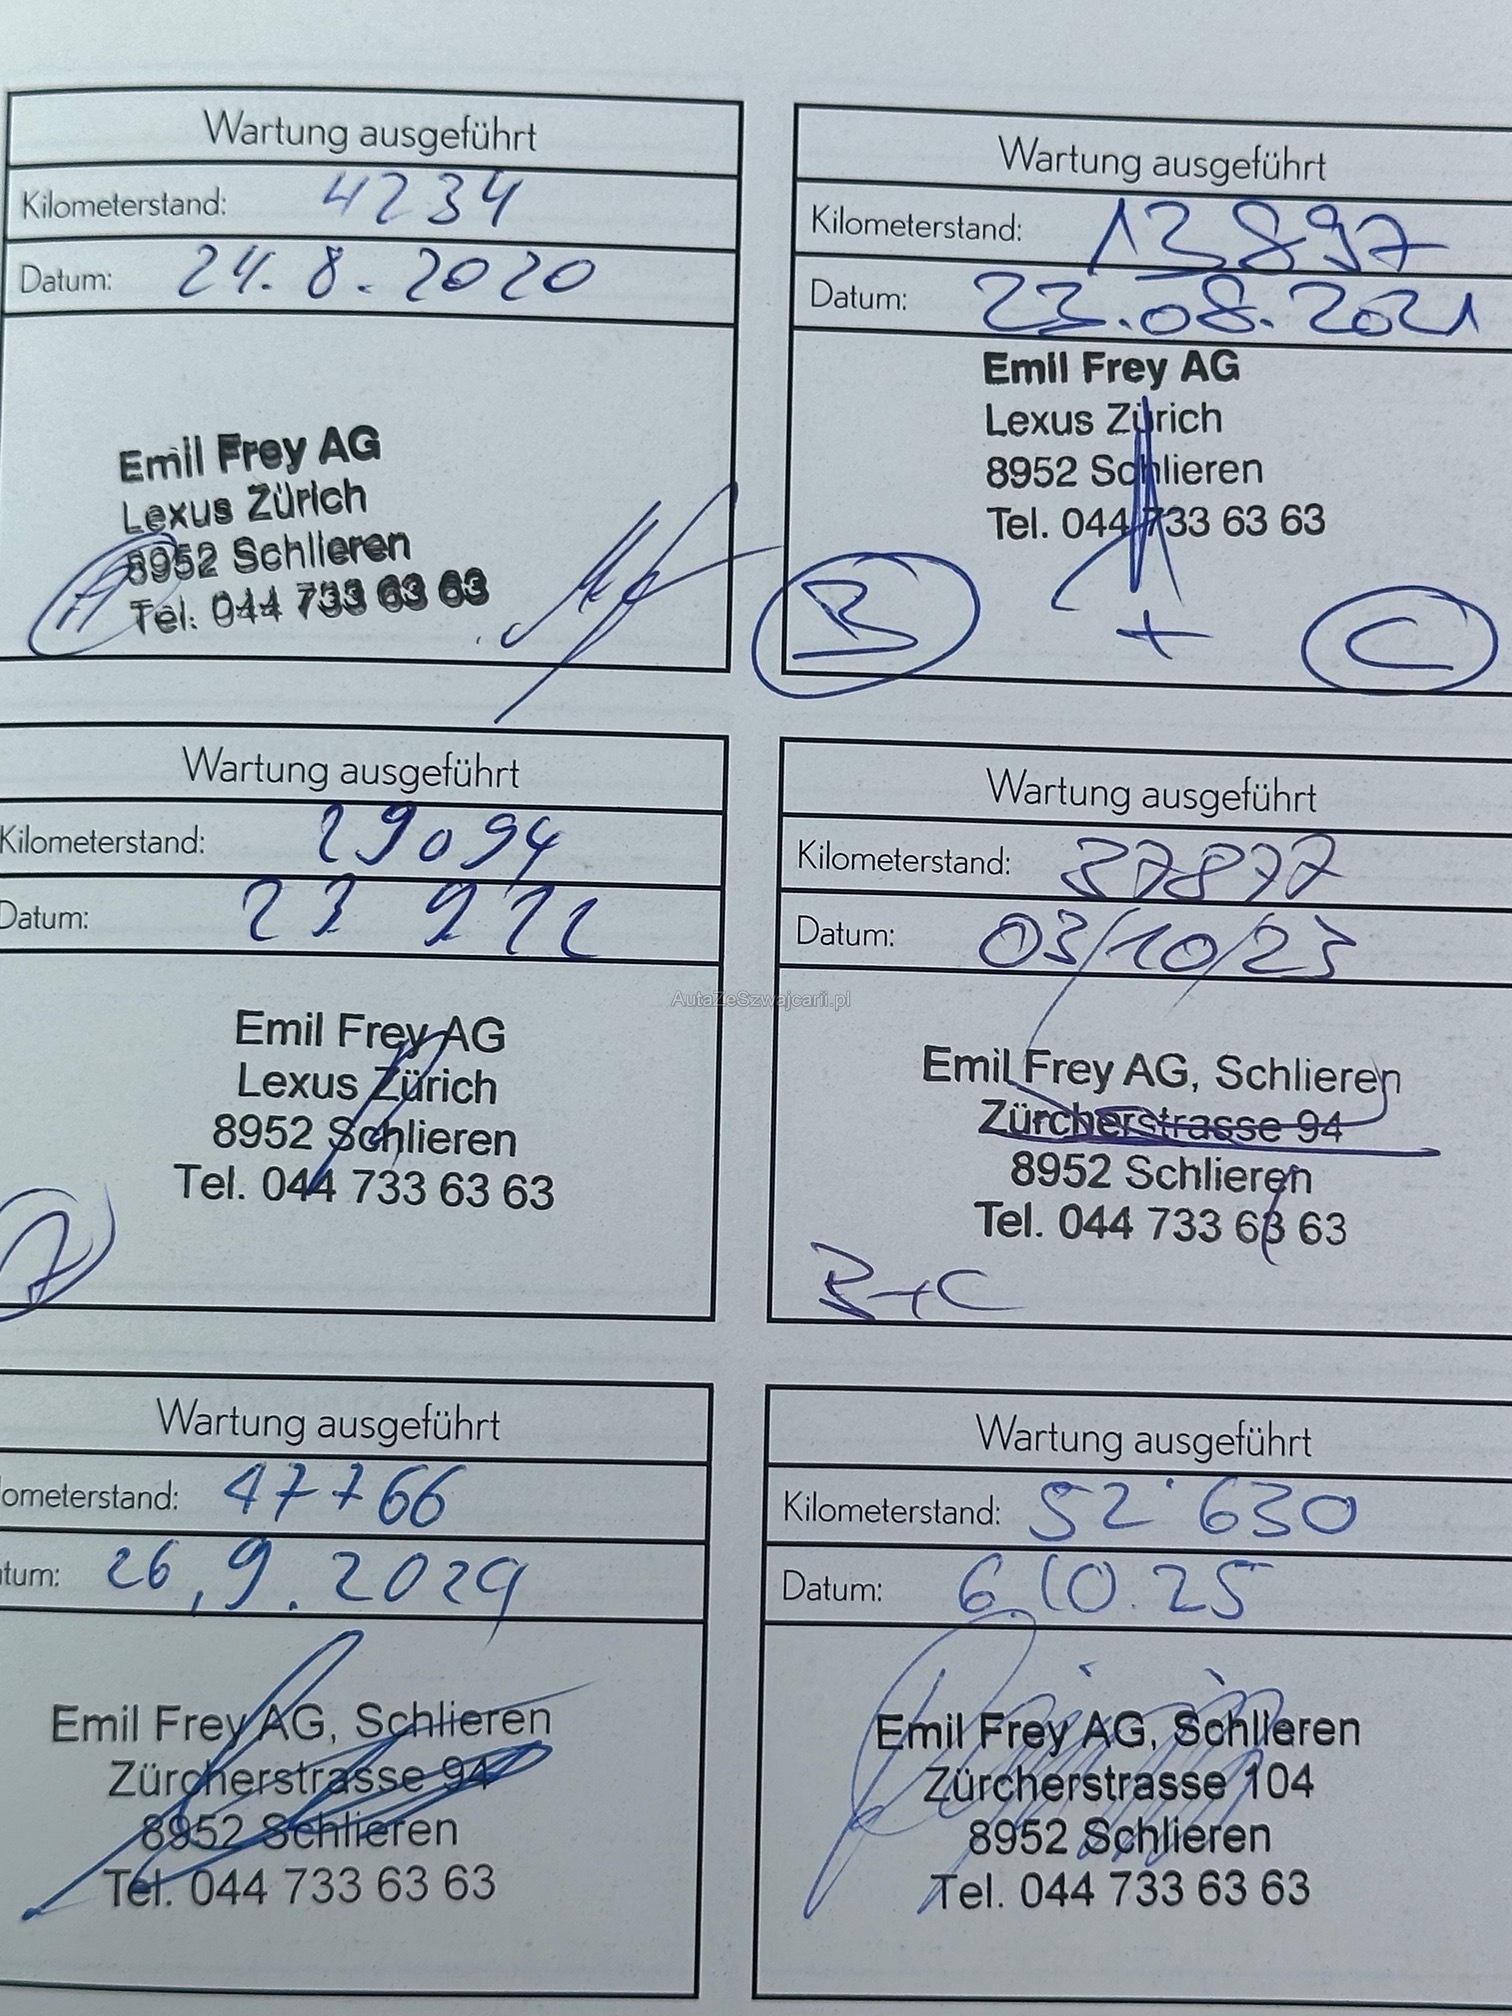 Wartung ausgeführt
Kilometerstand: 4234
Datum: 24.8.2020
Emil Frey AG
Lexus Zürich
8952 Schlieren
Tel. 044 733 63 63
A
Wartung ausgeführt
Kilometerstand: 13897
Datum: 23.08.2021
Emil Frey AG
Lexus Zürich
8952 Schlieren
Tel. 044 733 63 63
B + C
Wartung ausgeführt
Kilometerstand: 29094
Datum: 23 9 22
Emil Frey AG
Lexus Zürich
8952 Schlieren
Tel. 044 733 63 63
A
Wartung ausgeführt
Kilometerstand: 37877
Datum: 03/10/23
Emil Frey AG, Schlieren
Zürcherstrasse 94
8952 Schlieren
Tel. 044 733 63 63
B+C
AutaZeSzwajcarii.pl
Wartung ausgeführt
ometerstand: 47766
tum: 26.9.2024
Emil Frey AG, Schlieren
Zürcherstrasse 94
8952 Schlieren
Tel. 044 733 63 63
Wartung ausgeführt
Kilometerstand: 52'630
Datum: 6.10.25
Emil Frey AG, Schlieren
Zürcherstrasse 104
8952 Schlieren
Tel. 044 733 63 63